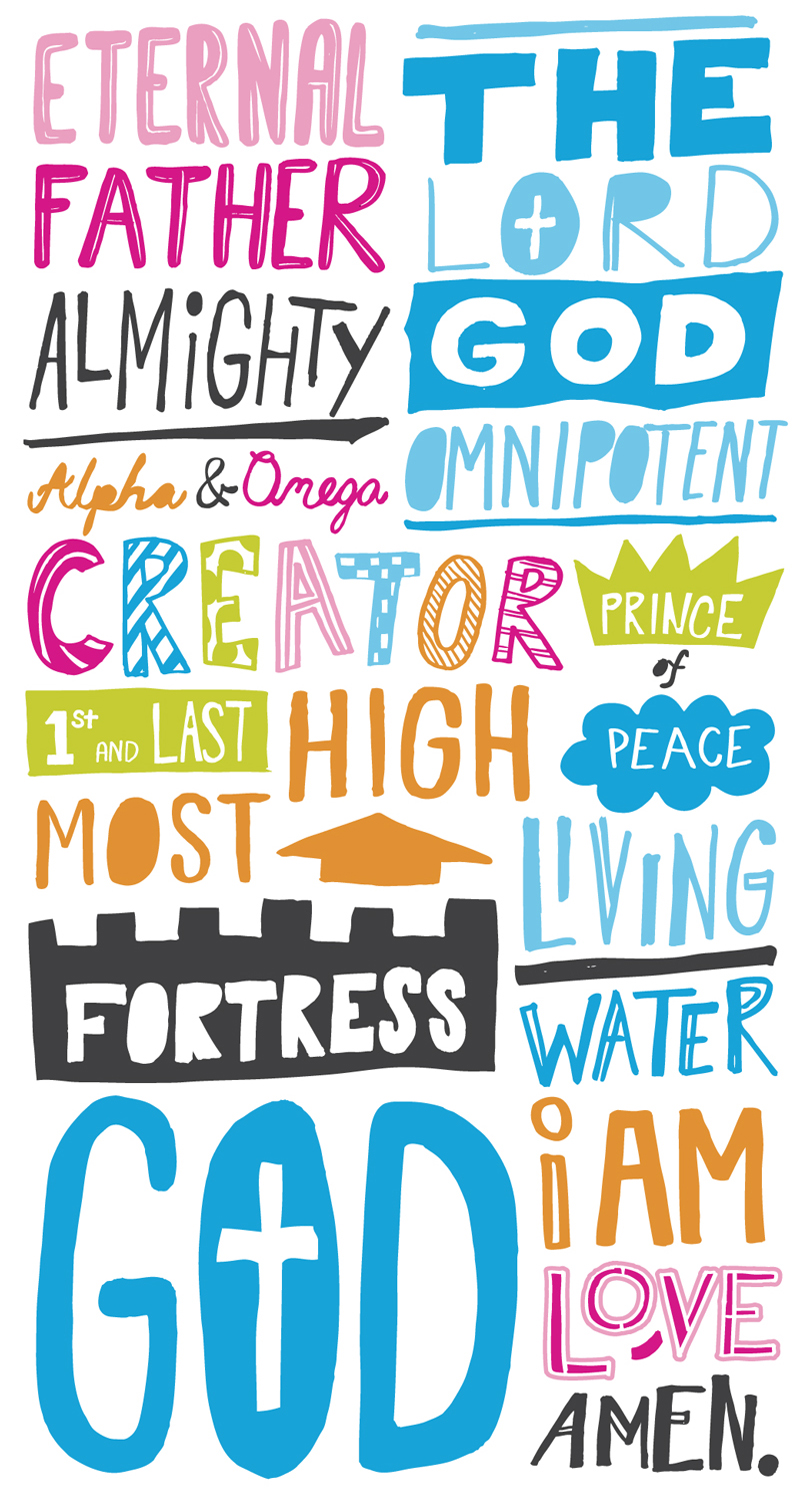 ETERNAL
FATHER
ALMiGHTY
Alpha & Omega
THE
LORD
GOD
OMNIPOTENT
CREATOR
PRINCE
of
PEACE
1st AND LAST
HIGH
MOST
LIViNG
WATER
FORTRESS
GOD
i AM
LOVE
AMEN.